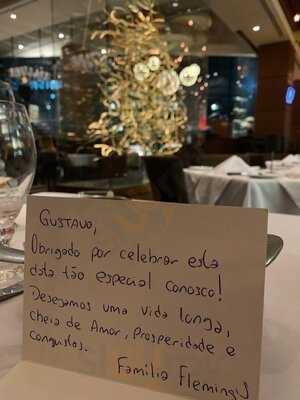 GUSTAVO,
Obrigado por celebrar esta
data tão especial conosco!
Desejamos uma vida longa,
cheia de Amor, Prosperidade e
conquistas.
Família Fleming's